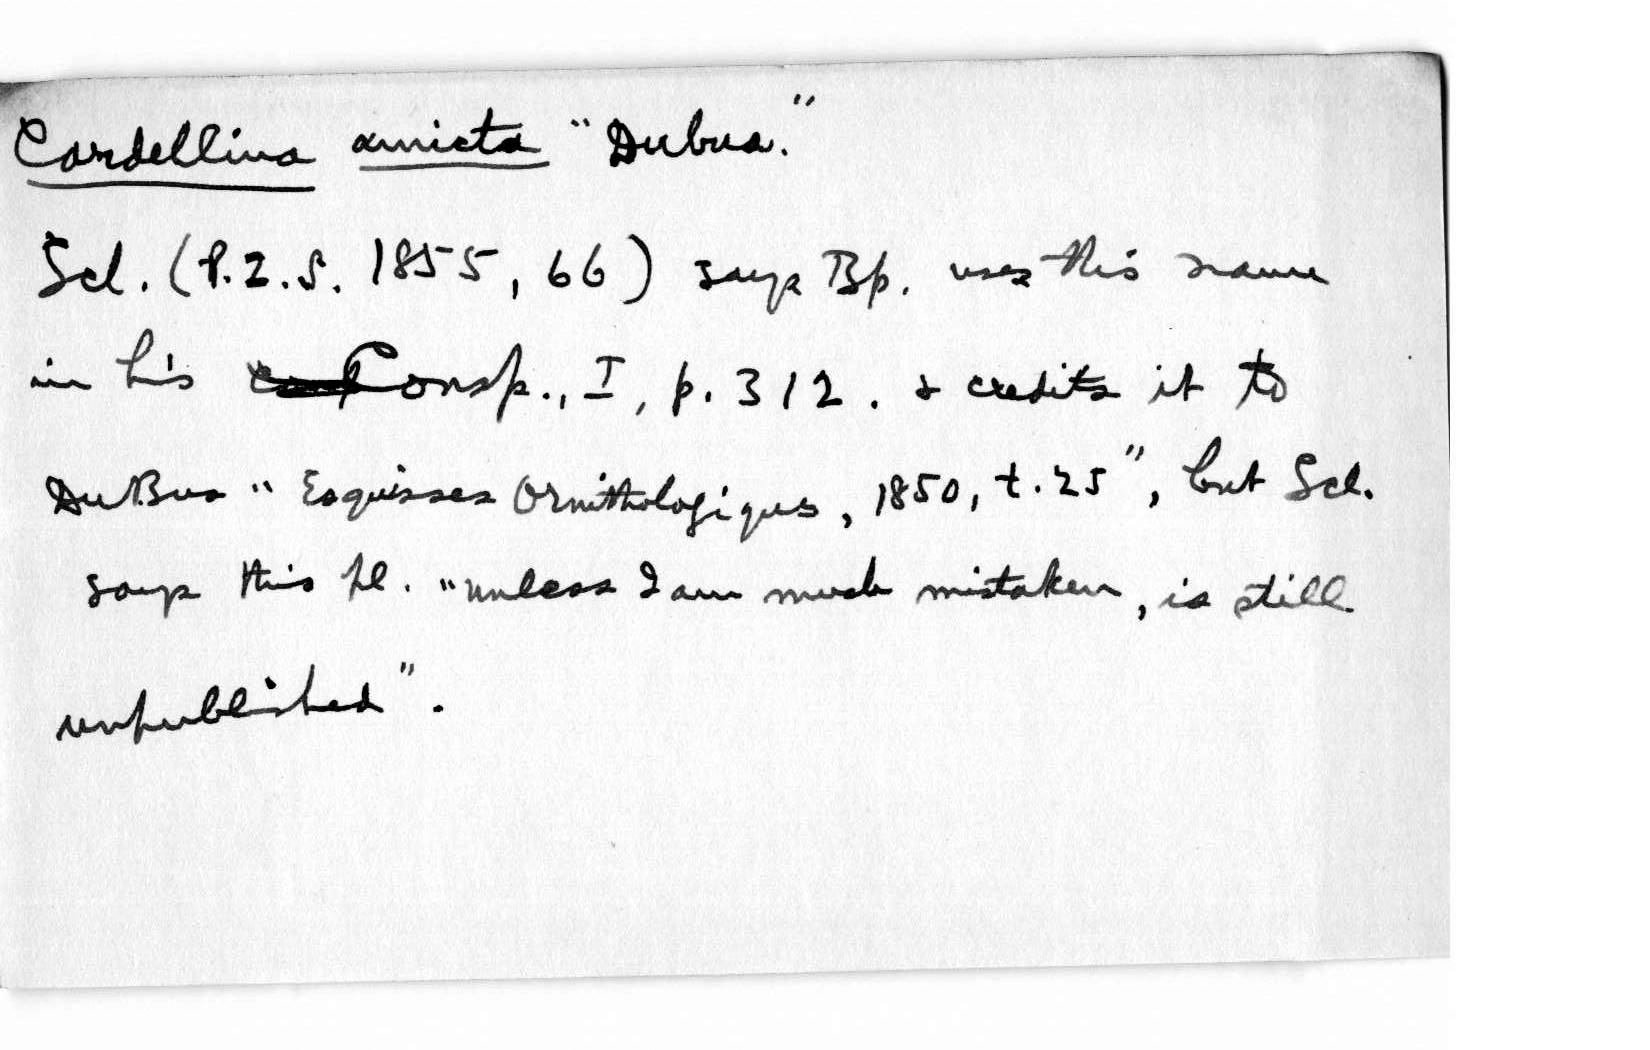 Cardellina amicta "Dubus."
Scl. (P.Z.S. 1855, 66) says Bp. uses this name
in his Consp., I, p. 312. & credits it to
DuBus "Esquisses Ornithologiques, 1850, t. 25", but Scl.
says this pl. "unless I am much mistaken, is still
unpublished".